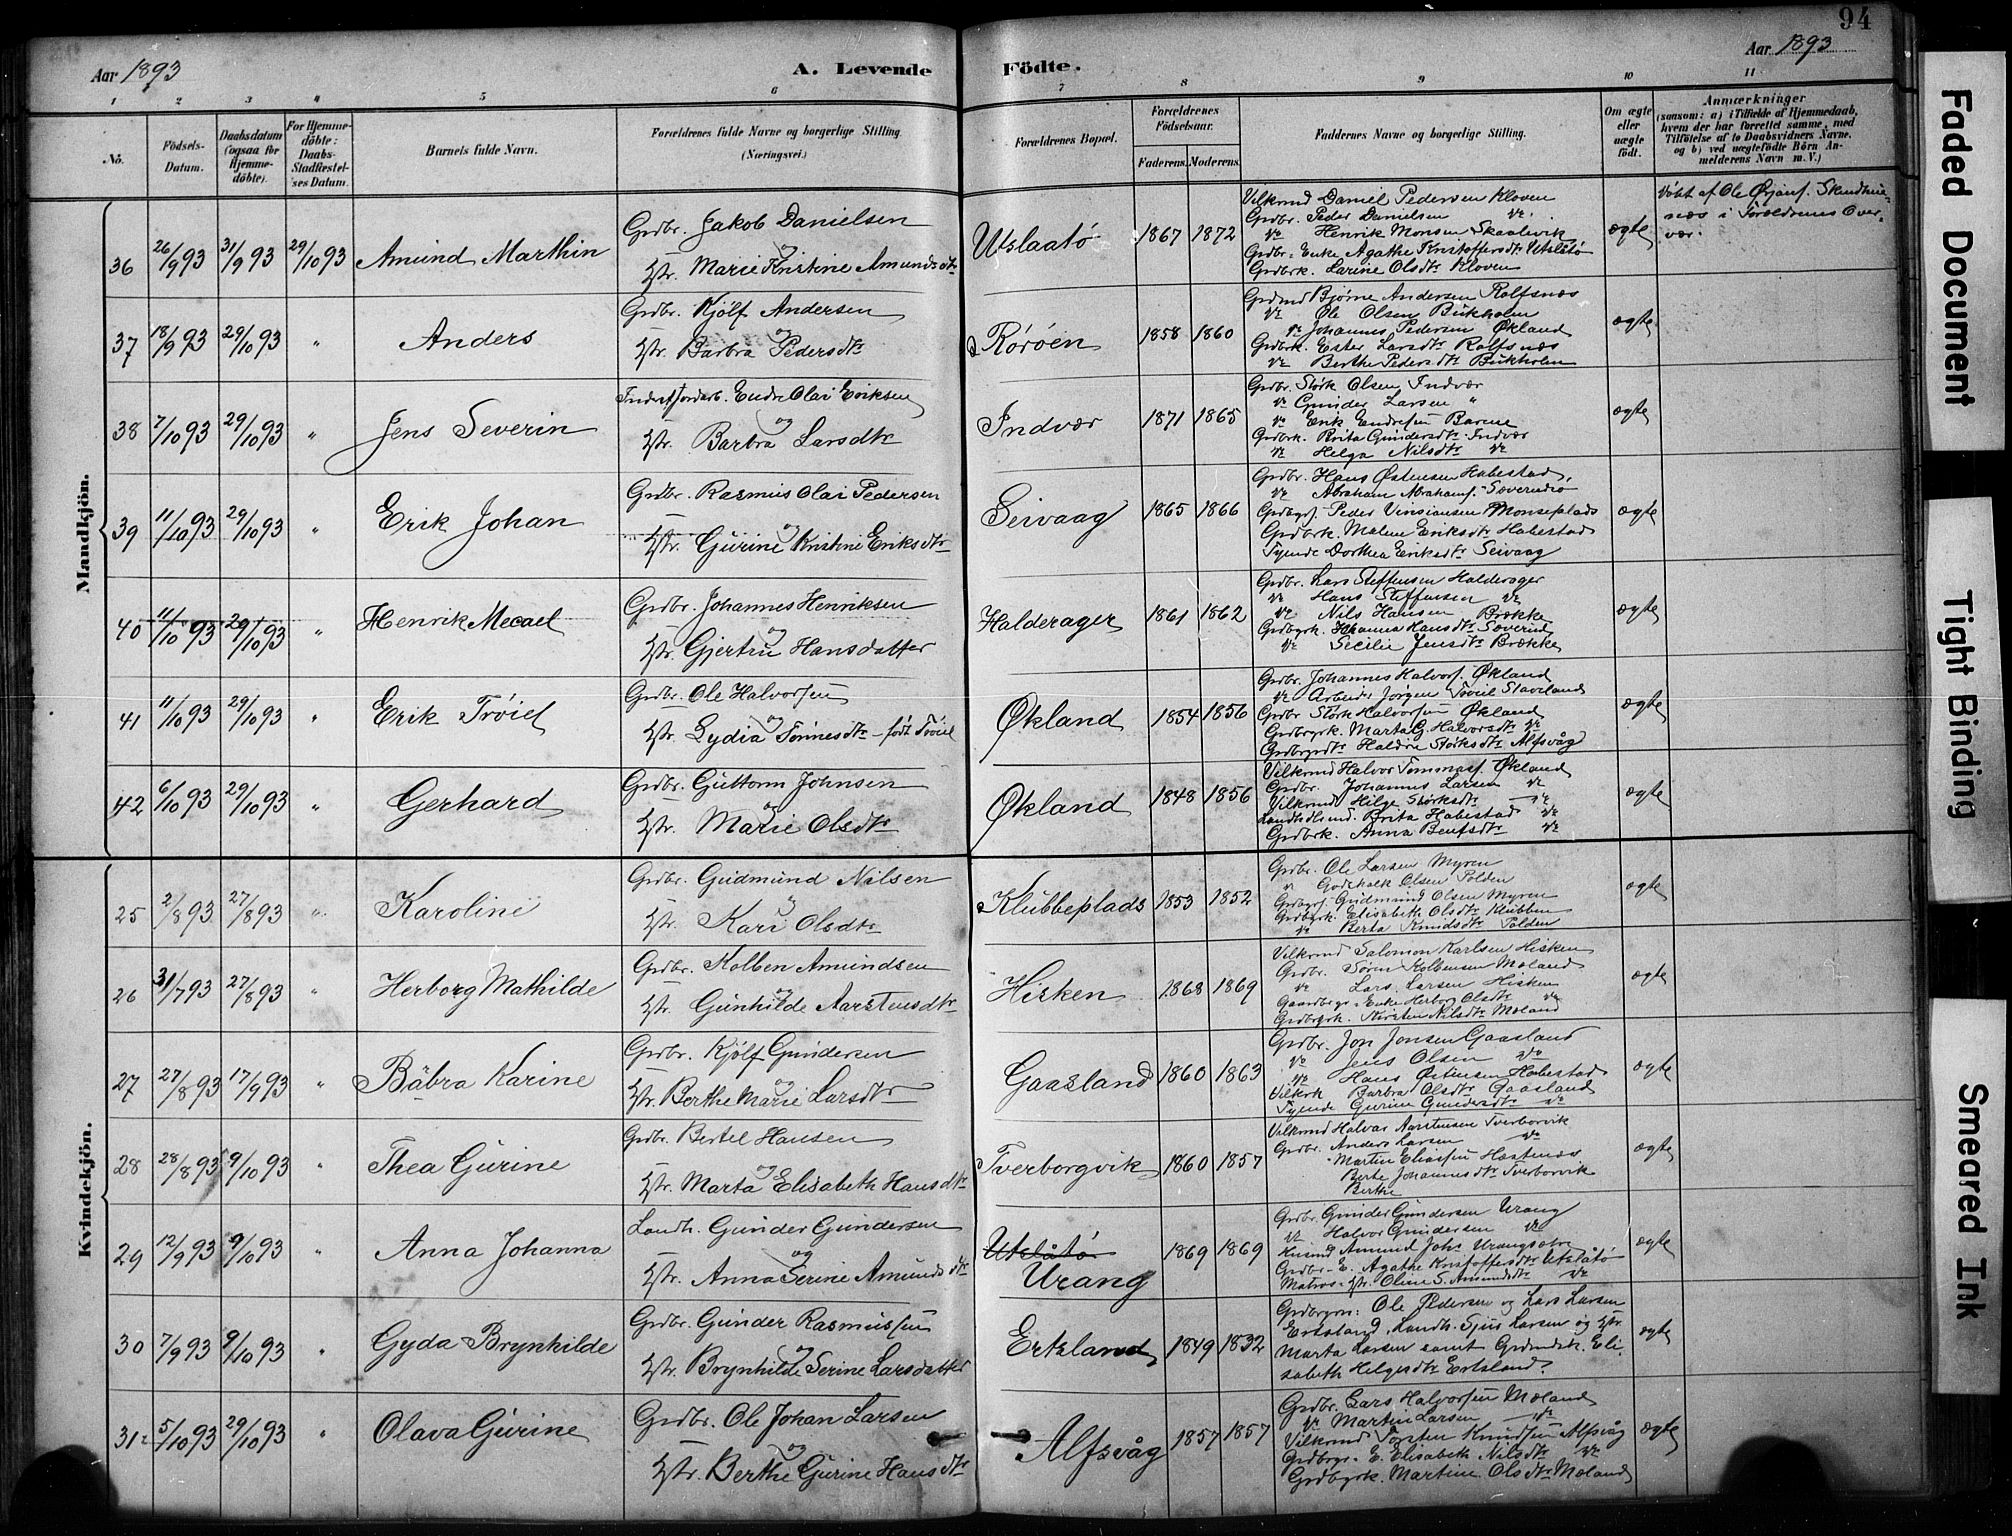 94
Aar 1893 A. Levende Födte. Aar 1893
1 2 3 4 5 6 7 8 9 10 11
No. Födsels-Datum. Daabsdatum (ogsaa for Hjemme-döbte). For Hjemme-döbte: Daabs-Stadfæstel-ses Datum. Barnets fulde Navn. Forældrenes fulde Navne og borgerlige Stilling. (Næringsvei.) Forældrenes Bopæl. Forældrenes Födselsaar. Faderens. Moderens. Faddernes Navne og borgerlige Stilling. Om ægte eller uægte födt. Anmærkninger (saasom: a) i Tilfælde af Hjemmedaab, hvem der har forrettet samme, med Tilföielse af to Daabsvidners Navne, og b) ved uægtefödte Börn An-melderens Navn m. V.)
Mandkjön.
36 26/9 93 31/9 93 29/10 93 Amund Marthin
Grdbr. Jakob Danielsen
og
Hstr. Marie Kristine Amundsdtr
Utslaatö 1867 1872
Vilkrmd Daniel Pedersen Kloven
Grdbr. Peder Danielsen do
do Henrik Monsen Skaalevik
Grdbr. Enke Agathe Kristoffersdtr Utslåtö
Grdbrk. Larine Olsdtr Kloven
ægte
Döbt af Ole Ørjans. Skindhue-
næs i Foreldrenes Over-
vær.
37 18/9 93 29/10 93 " Anders
Grdbr. Kjölf Andersen
og
Hstr. Barbra Pedersdtr
Röröen 1858 1860
Grdmd Björne Andersen Rolfsnæs
do Ole Olsen Bukholm
do Johannes Pedersen Økland
Grdbrk. Ester Larsdtr Rolfsnæs
do Berthe Pedersdtr Bukholm
ægte
38 7/10 93 29/10 93 " Jens Severin
Inderstjordarb. Endre Olai Eriksen
og
Hstr. Barbra Larsdtr
Indvær 1871 1865
Grdbr. Störk Olsen Indvær
do Gunder Larsen "
do Erik Endresen
Grdbrk. Brita Gundersdtr Indvær
do Helga Nilsdtr do
ægte
39 11/10 93 29/10 93 " Erik Johan
Grdbr. Rasmus Olai Pedersen
og
Hstr. Gurine Kristine Eriksdtr
Seivaag 1865 1866
Grdbr. Hans Østensen Habestad
do Abraham Abrahams. Sæverudö
Peder Vinsiansen Monseplads
Grdbrk. Malene Eriksdtr Habestad
Tyende Dorthea Eriksdtr Seivaag
ægte
40 11/10 93 29/10 93 " Henrik Mecael
Grdbr. Johannes Henriksen
og
Hstr. Gjertru Hansdatter
Halderager 1861 1862
Grdbr. Lars Steffensen Halderager
do Hans Steffensen do
do Nils Hansen Brække
Grdbyrk. Johanna Hansdtr Sæverud
do Secilie Jensdtr Brække
ægte
41 11/10 93 29/10 93 " Erik Tröiel
Grdbr. Ole Halvorsen
og
Hstr. Lydia Tönnesdtr - födt Tröiel
Økland 1854 1856
Grdbr. Johannes Halvors. Økland
do Arbeider Jörgen Tröiel Stavland
Grdbr Störk Halvorsen Økland
Grdbryrk. Marta G. Halvorsdtr do
Haldrie Störksdtr Alfsvåg
ægte
42 6/10 93 29/10 93 " Gerhard
Grdbr. Guttorm Johnsen
og
Hstr. Marie Olsdtr
Økland 1848 1856
Vilkrmd Halvor Tommas. Økland
Grdbr. Johannes Larsen do
Vilkrmd Helge Störksdtr do
Brita Habestad do
Grdbrk. Anna Bentsdtr do
ægte
Kvindekjön.
25 2/8 93 27/8 93 " Karoline
Grdbr. Gudmund Nilsen
og
Hstr. Kari Olsdtr
Klubbeplads 1853 1852
Grdbr. Ole Larsen Myren
" Godskalk Olsen Polden
Grdbgrs. Gudmund Olsen Myren
Grdbyrk. Elisabeth Olsdtr Klubben
do Berta Knudsdtr Polden
ægte
26 31/7 93 27/8 93 " Herborg Mathilde
Grdbr. Kolben Amundsen
og
Hstr. Gunhilde Aarstensdtr
Hisken 1868 1869
Vilkrmd Salomon Karlsen Hisken
Grdbr. Sören Kolbensen Moland
do Lars Larsen Hisken
Gaardbrgs. Enke Herborg Olsdtr do
Grdbyrk. Kirsten Nilsdtr Moland
ægte
27 27/8 93 17/9 93 " Båbra Karine
Grdbr. Kjölf Gundersen
og
Hstr. Berthe Marie Larsdtr
Gaasland 1860 1863
Grdbr. Jon Jonsen Gaasland
do Jens Olsen do
do Hans Östensen Habestad
Vilkrk Barbra Olsdtr Gaasland
Tyende Gurine Gundersdtr do
ægte
28 28/8 93 9/10 93 " Thea Gurine
Grdbr. Bertel Hansen
og
Hstr. Marta Elisabeth Hansdtr
Tverborgvik 1860 1857
Vilkrmd Halvar Aarstensen Tverborvik
Grdbr. Anders Larsen do
Martin Eliassen Hestenæs
Berte Johannesdtr Tverborvik
Berthe
ægte
29 12/9 93 9/10 93 " Anna Johanna
Landh. Gunder Gundersen
og
Hstr. Anna Serine Amundsdtr
Utslåtö
Urang 1869 1869
Grdbr. Gunder Gundersen Urang
do Halvor Gundersen do
Husmd Amund Johs. Urangsvåg
Grdbr. E. Agathe Kristoffersdtr Utslåtö
Matros. Hstr. Oline S. Amundsdtr do
ægte
30 7/9 93 9/10 93 " Gyda Brynhilde
Grdbr. Gunder Rasmussen
og
Hstr. Brynhilde Serine Larsdatter
Erksland 1849 1832
Grdbgrn: Ole Pedersen og Lars Larsen
Erksland, Landh. Sjur Larsen og Hstr.
Marta Larsen samt Grdmdsk. Eli-
sabeth Helgesdtr Erksland.
ægte
31 5/10 93 29/10 93 " Olava Gurine
Grdbr. Ole Johan Larsen
og
Hstr. Berthe Gurine Hansdtr
Alfsvåg 1857 1857
Grdbr. Lars Halvorsen Moland
do Martin Larsen do
Vilkrmd Torsten Knudsen Alfsvåg
Grdbrgs. E. Elisabeth Nilsdtr do
Grdbyrk. Martine Olsdtr Moland
ægte
Faded Document
Tight Binding
Smeared Ink